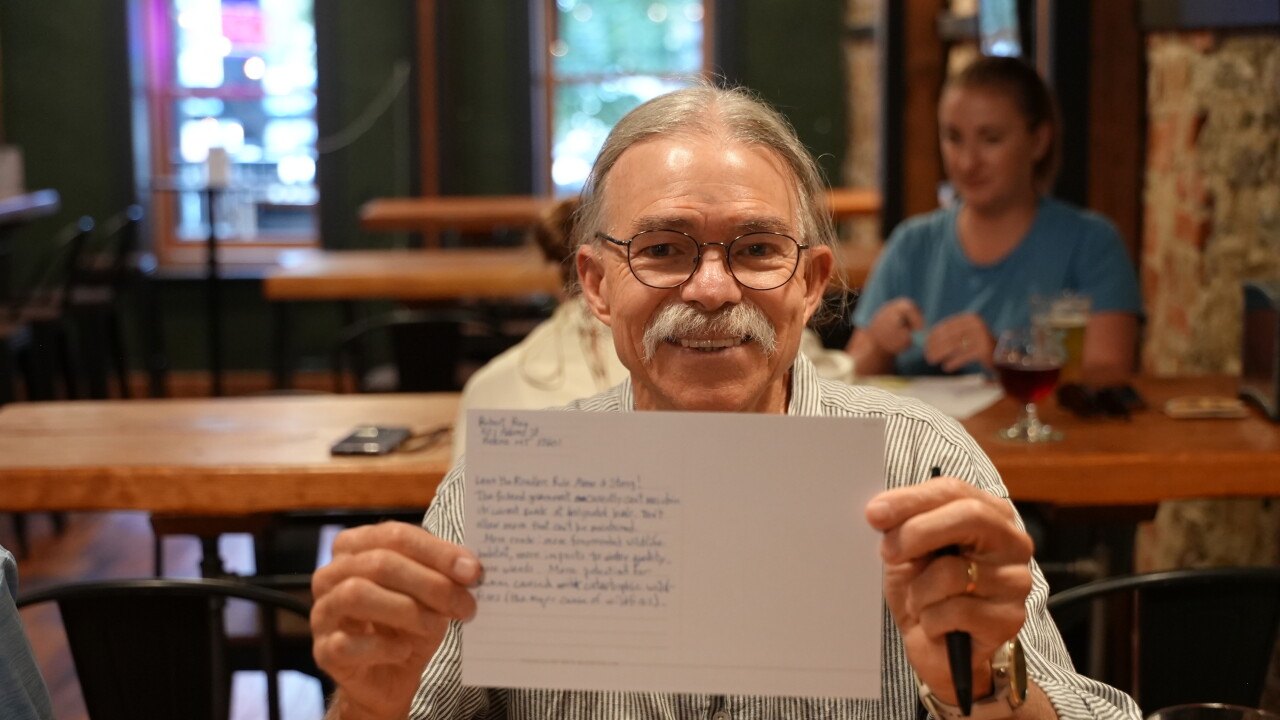 Robert Ray
Helena MT 59601
Leave the Roadless Rule Alone & Strong!
The federal government currently can't maintain
its current backlog of designated roads. Don't
allow more that can't be maintained.
More roads: more fragmented wildlife
habitat, more impacts to water quality,
more weeds. More potential for
human caused catastrophic wild-
fires (the major cause of wildfires).